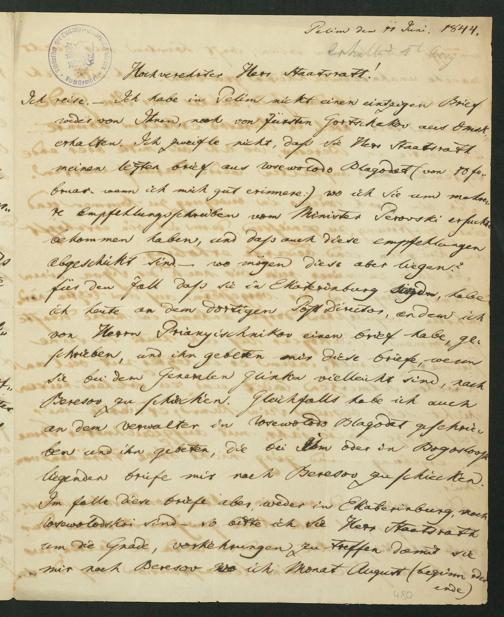 Pelim den 11 Juni. 1844.
erhalten d. 4t Aug
Hochverehrter Herr Staatsrath!
Ich reise. — Ich habe in Pelim nicht einen einzigen Brief
weder von Ihnen, noch von Fürsten Gortschakow aus Omsk
erhalten. Ich zweifle nicht, daß sie Herr Staatsrath
meinen letzten brief aus Wsewolodo Blagodat (von 10 fe-
bruar. wenn ich mich gut erinnere:) wo ich Sie um mehre-
re Empfehlungsschreiben vom Minister Perovski ersuchte
bekommen haben, und daß auch diese empfehlungen
abgeschikt sind — wo mögen diese aber liegen?
für den Fall daß sie in Ekaterinburg habe
ich heute an dem dortigen Postdirector, an dem ich
von Herrn Prianyischnikov einen brief habe, ge-
schrieben, und ihn gebeten mir diese briefe, wenn
sie bei dem Generalen Glinka vielleicht sind, nach
Beresov zu schicken. Gleichfalls habe ich auch
an dem verwalter in Wsewolodo Blagodat geschrie-
ben und ihn gebeten, die bei ihm oder in Bogoslovsk
liegenden briefe mir nach Beresov zu schicken.
Im falle diese briefe aber weder in Ekaterinburg, noch
Wsewolodskoi sind — so bitte ich sie Herr Staatsrath
um die Gnade, vorkehrungen zu treffen damit sie
mir nach Beresov wo ich Monat August (beginn oder
ende)
480